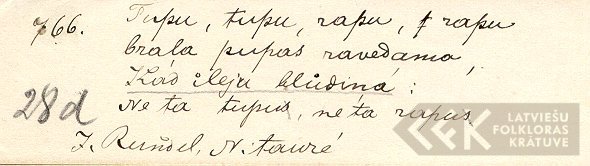 766. Tupu, tupu, rapu, rapu
brāļa pupas ravēdama,
Kād ileju blūdina:
28d
Ne ta tupus, nē ta rapus
J. Rundel, N. taurē
LATVIEŠU
FOLKLORAS
KRĀTUVE